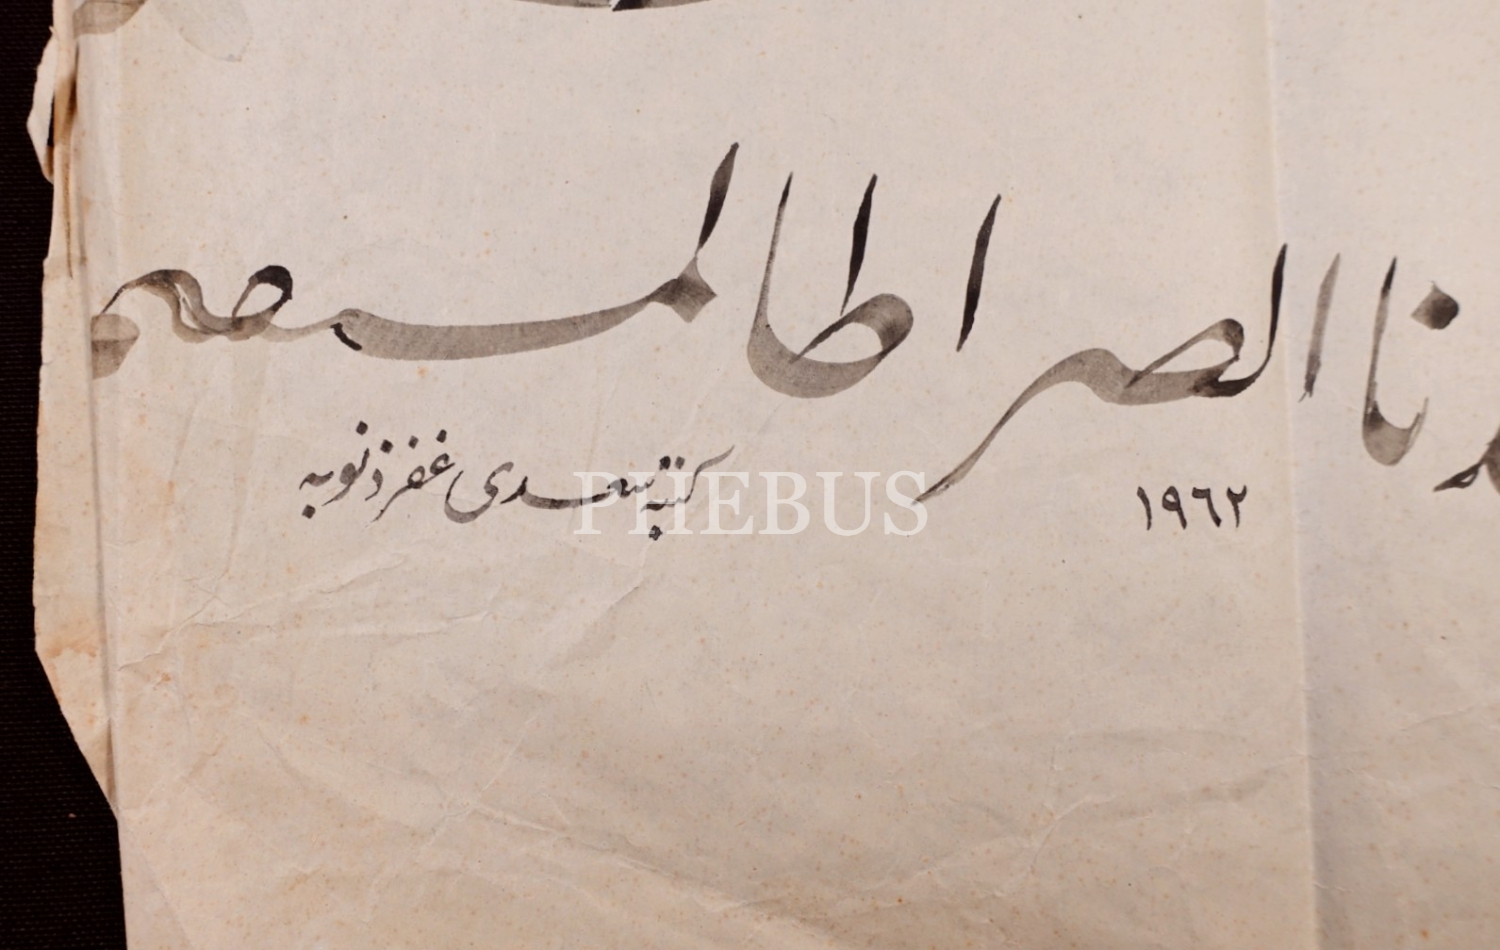 نا الصراط المستقيم
١٩٦٢
كتبه سعدی غفر ذنوبه
PHEBUS